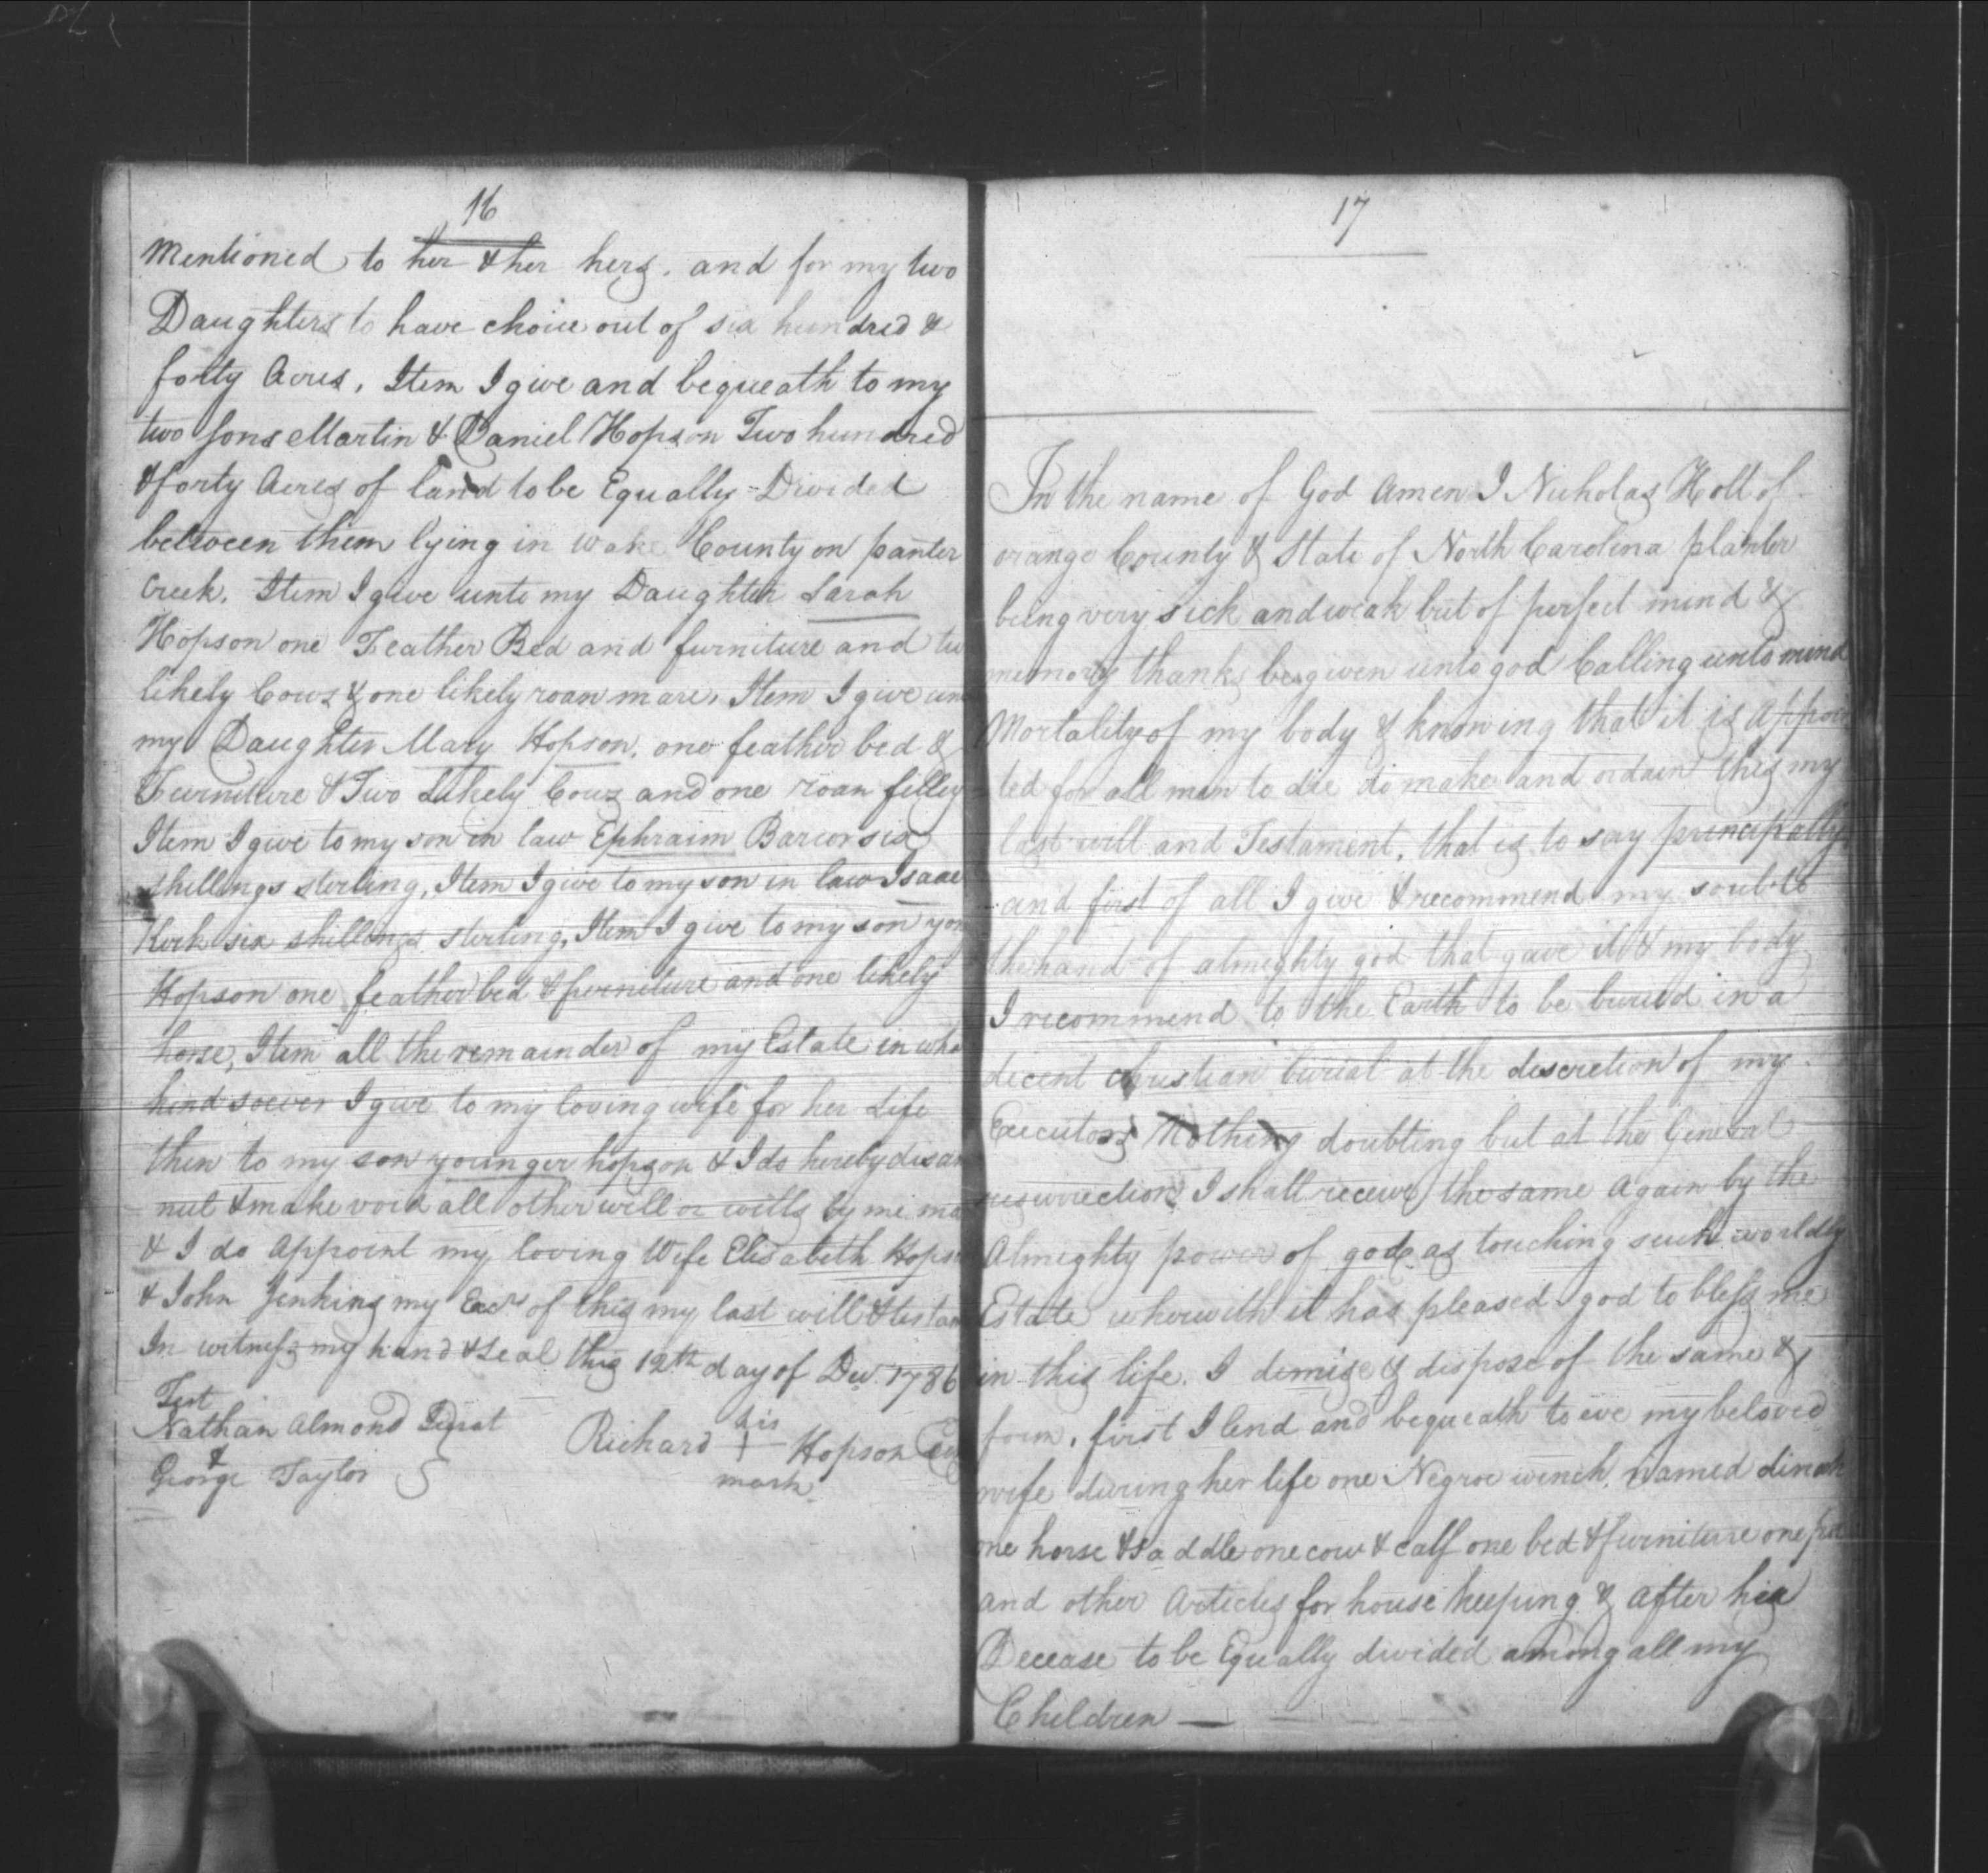 16
Mentioned to her & her hers. and for my two
Daughters to have choice out of six hundred &
forty Acres. Item I give and bequeath to my
two sons Martin & Daniel Hopson Two hundred
& forty Acres of land to be Equally Divided
between them lying in Wake County on panter
Creek. Item I give unto my Daughter Sarah
Hopson one Feather Bed and furniture and tw
likely Cows & one likely roan mare, Item I give un
my Daughter Mary Hopson, one feather bed &
Furniture & Two Likely Cows and one roan filley
Item I give to my son in law Ephraim six
shillings sterling, Item I give to my son in law Isaac
Kirk six shillings sterling, Item I give to my son yon
Hopson one feather bed & furniture and one likely
horse, Item all the remainder of my Estate in wha
kind soever I give to my loving wife for her Life
then to my son younger hopson & I do hereby disan
nul & make void all other will or wills by me ma
& I do Appoint my loving Wife Elisabeth Hopso
& John Jenkins my Exrs of this my last will & testam
In witness my hand & Seal this 12th day of Dec. 1786
Test
Nathan Almond Jurat
&
George Taylor
his
Richard + Hopson
mark
17
In the name of God Amen I Nicholas Holt of
orange County & State of North Carolina planter
being very sick and weak but of perfect mind &
memory thanks be given unto god Calling unto mind
Mortality of my body & knowing that it is appoin
ted for all man to die do make and ordain this my
last will and Testament, that is to say principally
and first of all I give & recommend my soul to
the hand of almighty god that gave it & my body
I recommend to the Earth to be buried in a
decent christian burial at the discretion of my
Executors Nothing doubting but at the General
resurrection I shall receive the same Again by the
Almighty power of god as touching such worldly
Estate wherewith it has pleased god to bless me
in this life. I demise & dispose of the same &
form, first I lend and bequeath to eve my beloved
wife during her life one Negroe winch named dinah
one horse & saddle one cow & calf one bed & furniture one
and other Articles for house keeping & after her
Decease to be Equally divided among all my
Children —